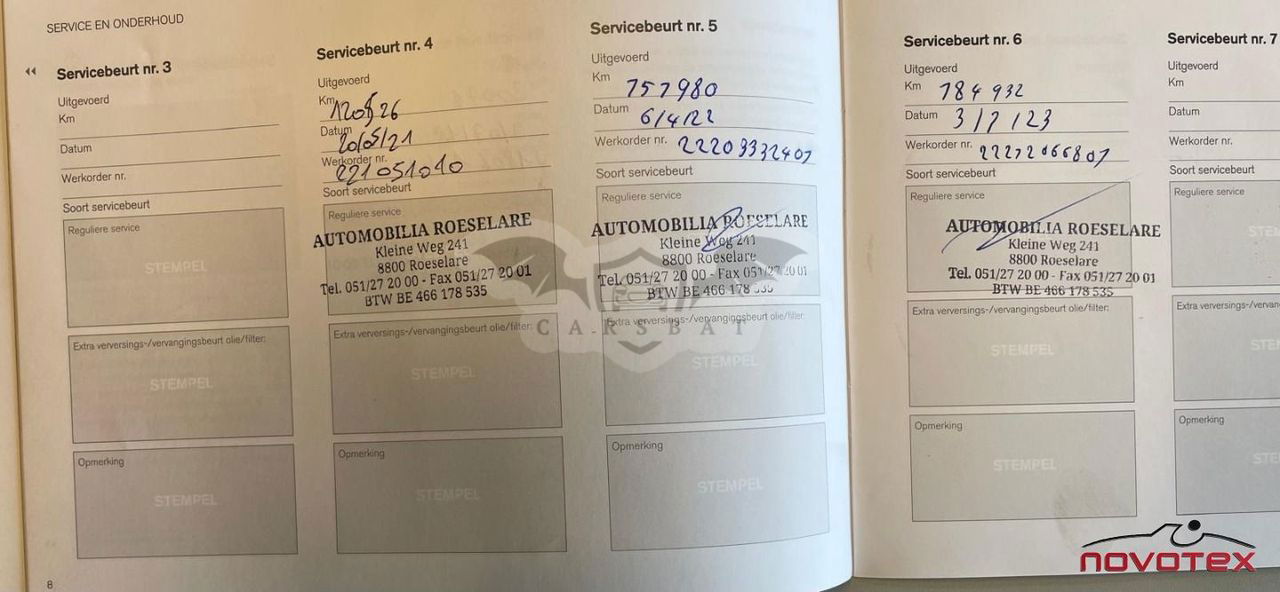 SERVICE EN ONDERHOUD
Servicebeurt nr. 3
Uitgevoerd
Km
Datum
Werkorder nr.
Soort servicebeurt
Reguliere service
STEMPEL
Extra verversings-/vervangingsbeurt olie/filter:
STEMPEL
Opmerking
STEMPEL
8
Servicebeurt nr. 4
Uitgevoerd
Km 120826
Datum 20/05/21
Werkorder nr. 221051010
Soort servicebeurt
Reguliere service
AUTOMOBILIA ROESELARE
Kleine Weg 241
8800 Roeselare
Tel. 051/27 20 00 - Fax 051/27 20 01
BTW BE 466 178 535
Extra verversings-/vervangingsbeurt olie/filter:
STEMPEL
Opmerking
STEMPEL
Servicebeurt nr. 5
Uitgevoerd
Km 157980
Datum 6/4/22
Werkorder nr. 22209332401
Soort servicebeurt
AUTOMOBILIA ROESELARE
Kleine Weg 241
8800 Roeselare
Tel. 051/27 20 00 - Fax 051/27 20 01
BTW BE 466 178 535
Extra verversings-/vervangingsbeurt olie/filter:
STEMPEL
Opmerking
STEMPEL
CARSBAT
Servicebeurt nr. 6
Uitgevoerd
Km 184 932
Datum 3/7/23
Werkorder nr. 22272066801
Soort servicebeurt
Reguliere service
AUTOMOBILIA ROESELARE
Kleine Weg 241
8800 Roeselare
Tel. 051/27 20 00 - Fax 051/27 20 01
BTW BE 466 178 535
Extra verversings-/vervangingsbeurt olie/filter:
STEMPEL
Opmerking
STEMPEL
Servicebeurt nr. 7
Uitgevoerd
Km
Datum
Werkorder nr.
Soort servicebeurt
Reguliere service
STE
Extra verversings-/vervan
STE
Opmerking
STE
NOVOTEX